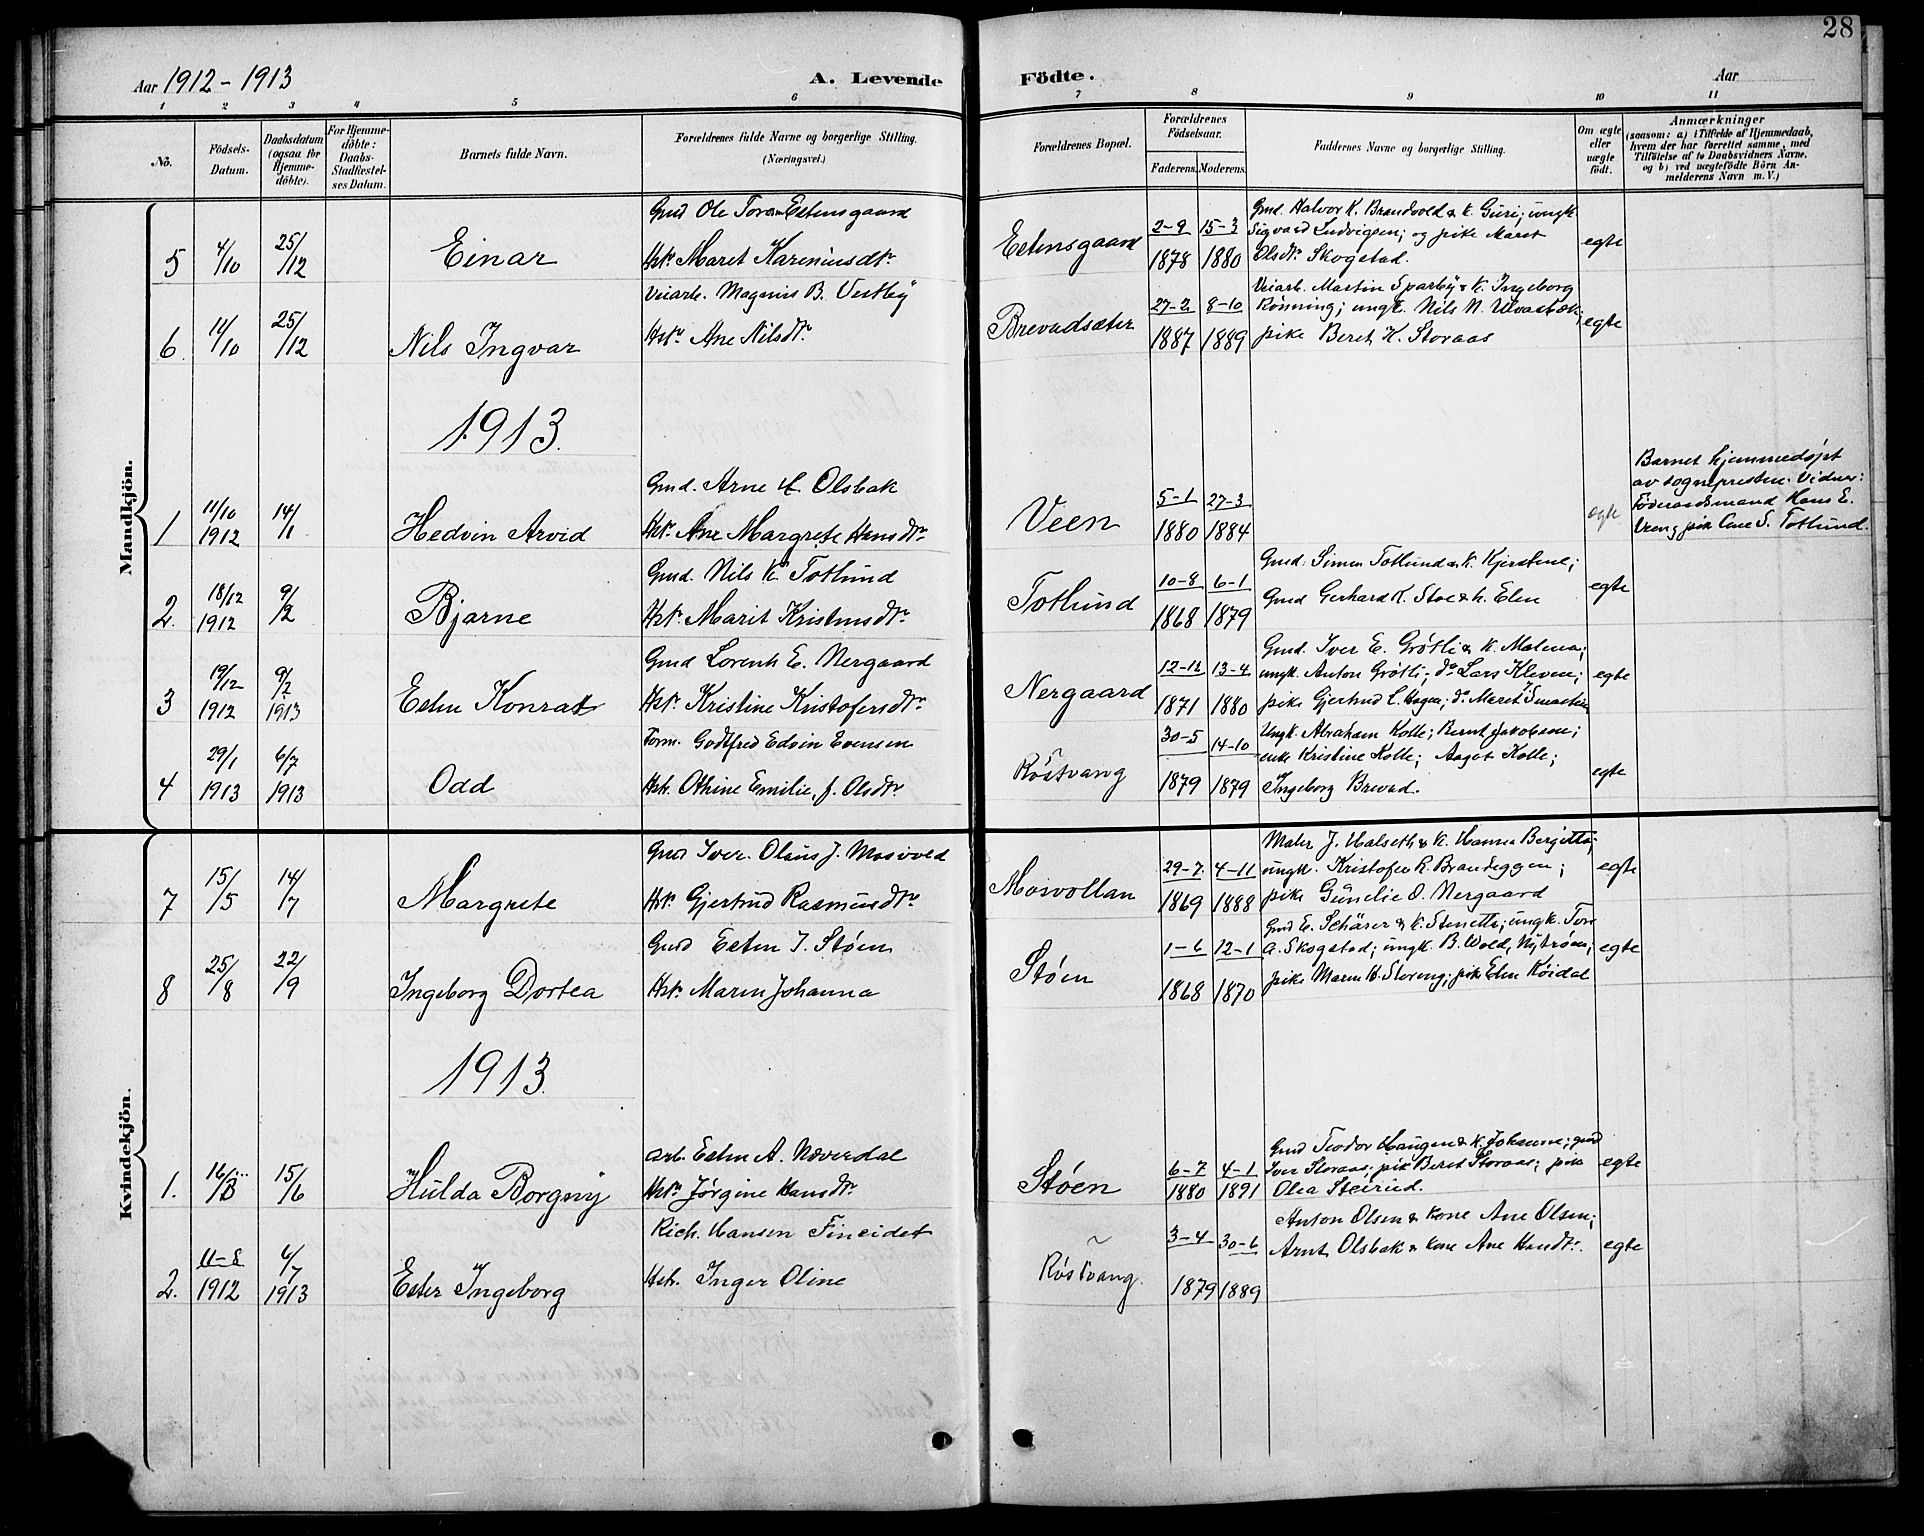 28
Aar 1912-1913 A. Levende Födte. Aar
1 2 3 4 5 6 7 8 9 10 11
No. Födsels-Datum. Daabsdatum (ogsaa for Hjemme-döbte). For Hjemme-döbte: Daabs-Stadfæstel-ses Datum. Barnets fulde Navn. Forældrenes fulde Navne og borgerlige Stilling. (Næringsvei.) Forældrenes Bopæl. Forældrenes Födselsaar. Faderens. Moderens. Faddernes Navne og borgerlige Stilling. Om ægte eller uægte födt. Anmærkninger (saasom: a) i Tilfælde af Hjemmedaab, hvem der har forrettet samme, med Tilföielse af to Daabsvidners Navne, og b) ved uægtefödte Börn An-melderens Navn m. V.)
Mandkjön.
Gmd Ole Estensgaard
5 4/10 25/12 Einar Hst. Maret Kareniusdtr. Estensgaard 2-9 1878 15-3 1880 egte
Gmd. Halvor K. Brandvold & k. Guri; ungk.
Sigvard Ludvigsen; og pike Maret
Olsdtr. Skogstad.
Veiarb. Magnus B. Vestby
6. 11/10 25/12 Nils Ingvar Hstr. Ane Nilsdtr. Brevadsæter 27-2 1887 8-10 1889 egte
Veiarb. Martin Sparby & k. Ingeborg
Rønning; ungk. Nils N.
pike Beret K. Storaas
1913.
Gmd. Arne H. Olsbak
1 11/10 1912 14/1 Hedvin Arvid Hst. Ane Margrete Hansdtr. Veen 5-1 1880 27-3 1884 egte
Barnet hjemmedøpt
av sognepresten. Vidner:
Föderaadsmand Hans E.
Veen, pik S. Totlund.
Gmd. Nils K. Totlund
2. 18/12 1912 9/2 Bjarne Hst. Marit Kristensdtr. Totlund 10-8 1868 6-1 1879 egte
Gmd. Simen Totlund & k. Kjerstine;
Gmd Gerhard K. Stoe & k. Elen
Gmd Lorents E. Nergaard
3 19/12 1912 9/2 1913 Esten Konrat Hst. Kristine Kristofersdtr. Nergaard 12-12 1871 13-4 1880 egte
Gmd. Iver E. Grøtli & k. Malena;
ungk. Anton Grøtli; do Lars Kleven;
pike Gjertrud L. Hagen; do Maret
Form. Godtfred Edvin Evensen
4 29/1 1913 6/7 1913 Odd Hst. Othine Emilie, f. Olsdtr. Røstvang 30-5 1879 14-10 1879 egte
Ungk. Abraham Kolle; Bernt Jakobsen;
enke Kristine Kolle; Aagot Kolle;
Ingeborg Brevad.
Kvindekjön.
Gmd Iver Olaus J. Mosvold
7 15/5 14/7 Margrete Hst. Gjertrud Rasmusdtr. Mosvollan 29-7 1869 4-11 1888 egte
Maler J. Halseth & k. Hanna Bergitta;
ungk. Kristofer R. Brandeggen;
pike Gunelie O. Nergaard
Gmd Esten J. Støen
8 25/8 22/9 Ingeborg Dortea Hst. Maren Johanna Støen 1-6 1868 12-1 1870 egte
Gmd E. Schärer & k. Stenetta; ungk. Tore
A. Skogstad; ungk. B. Wold, Nystrøen;
pike Maren H. Storeng; pike Elen Röidal
1913.
Arb. Esten A. Næverdal
1. 16/3 15/6 Hulda Borgny Hst. Jørgine Hansdtr. Støen 6-7 1880 4-1 1891 egte
Gmd Teodor Haugen & k. Johanne; gmd
Iver Storaas; pik Beret Storaas; pike
Olea Steirud.
Rich. Hansen Fineidet
2. 11-8 1912 6/7 1913 Ester Ingeborg Hst. Inger Oline Røstvang. 3-4 1879 30-6 1889 egte
Anton Olsen & kone Ane Olsen;
Arnt Olsbak & kone Ane Hansdtr.